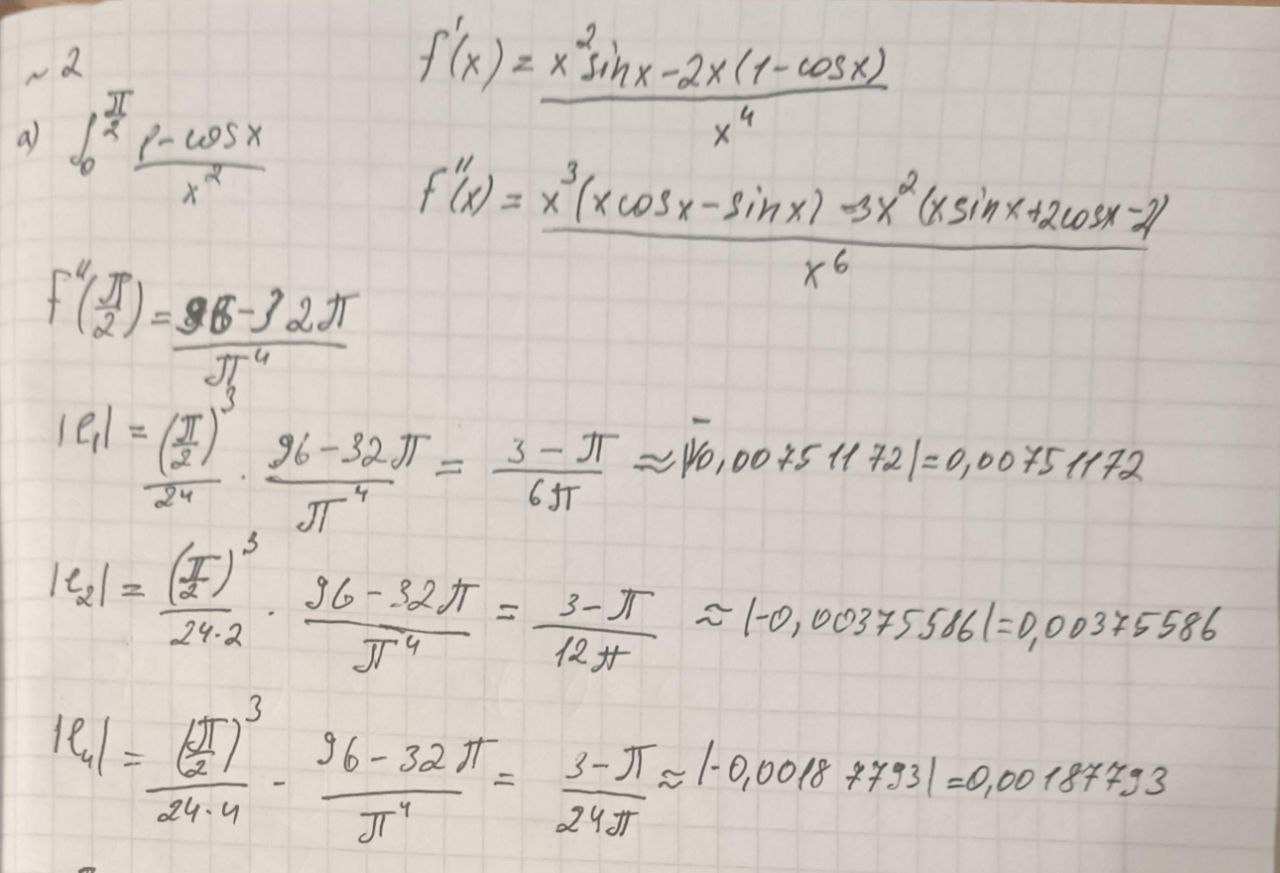 ~ 2
f'(x) = (x² sinx - 2x(1 - cosx)) / x⁴
а) ∫₀^(π/2) (1 - cosx) / x²
f''(x) = (x³(x cosx - sinx) - 3x²(x sinx + 2cosx - 2)) / x⁶
f''(π/2) = (96 - 32π) / π⁴
|e₁| = (π/2)³ / 24 · (96 - 32π) / π⁴ = (3 - π) / 6π ≈ |-0,00751172| = 0,00751172
|e₂| = (π/2)³ / (24·2) · (96 - 32π) / π⁴ = (3 - π) / 12π ≈ |-0,00375586| = 0,00375586
|e₄| = (π/2)³ / (24·4) - (96 - 32π) / π⁴ = (3 - π) / 24π ≈ |-0,00187793| = 0,00187793